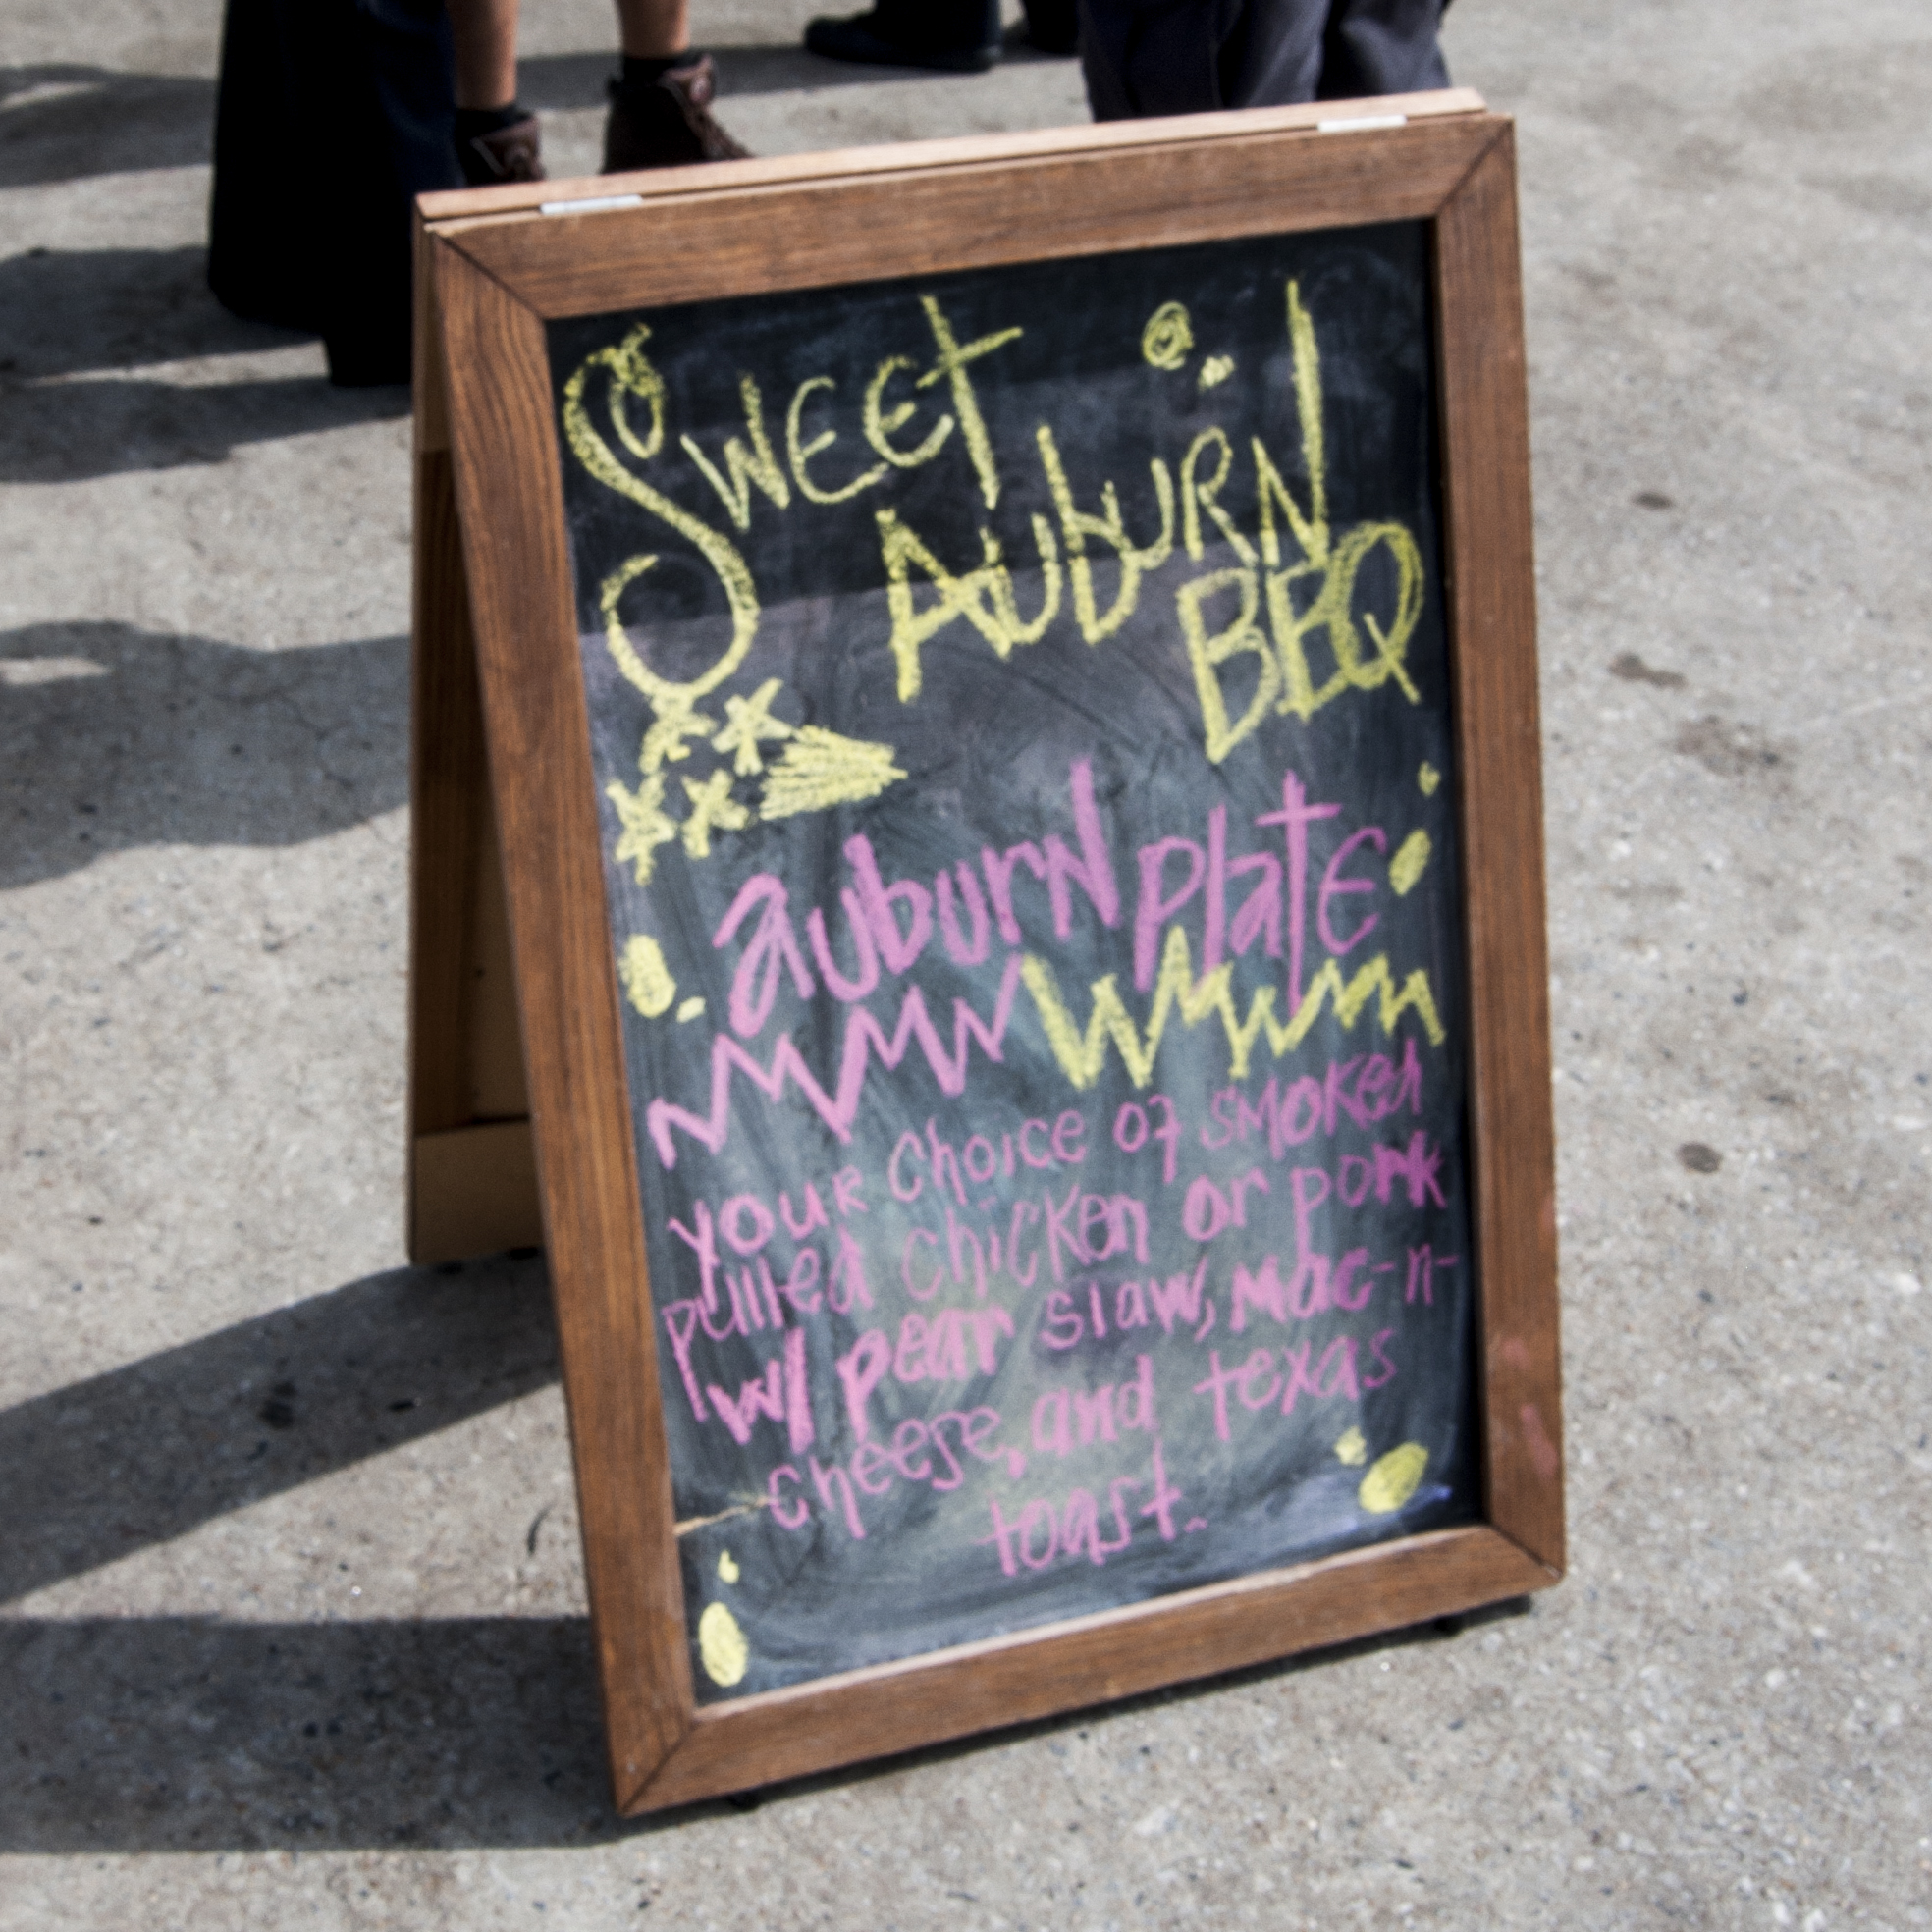 Sweet
Auburn
BBQ
auburn plate
your choice of smoked
pulled chicken or pork
w/ pear slaw, mac-n-
cheese, and texas
toast.